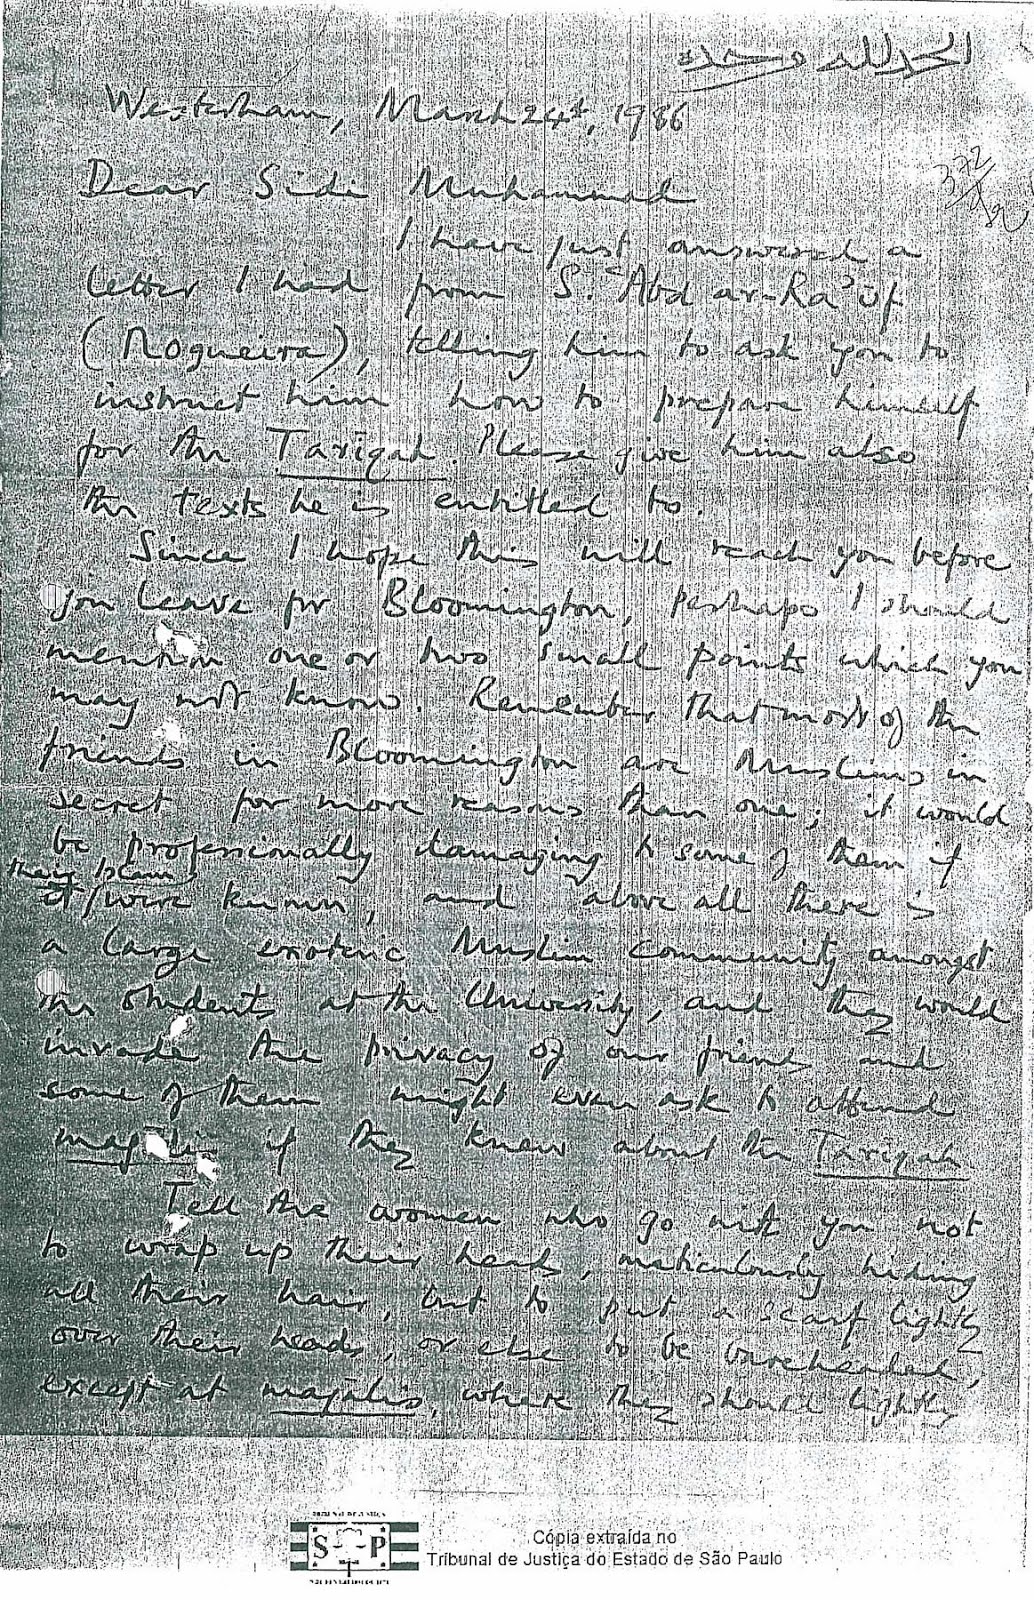 الحمد لله وحده
Westerham, March 24th, 1986
372
Dear Sidi Muhammad
I have just answered a
letter I had from S. ʿAbd ar-Raʾūf
(Nogueira), telling him to ask you to
instruct him how to prepare himself
for the Tarīqah. Please give him also
the texts he is entitled to.
Since I hope this will reach you before
you leave for Bloomington, perhaps I should
mention one or two small points which you
may not know. Remember that most of the
friends in Bloomington are Muslims in
secret for more reasons than one; it would
be professionally damaging to some of them if
their Islam
it/were known, and above all there is
a large exoteric Muslim community amongst
the students at the University, and they would
invade the privacy of our friends and
some of them might even ask to attend
majālis if they knew about the Tarīqah
Tell the women who go with you not
to wrap up their heads, meticulously hiding
all their hair, but to put a scarf lightly
over their heads, or else to be bareheaded,
except at majālis, where they should lightly
TRIBUNAL DE JUSTIÇA
S P
Cópia extraída no
Tribunal de Justiça do Estado de São Paulo